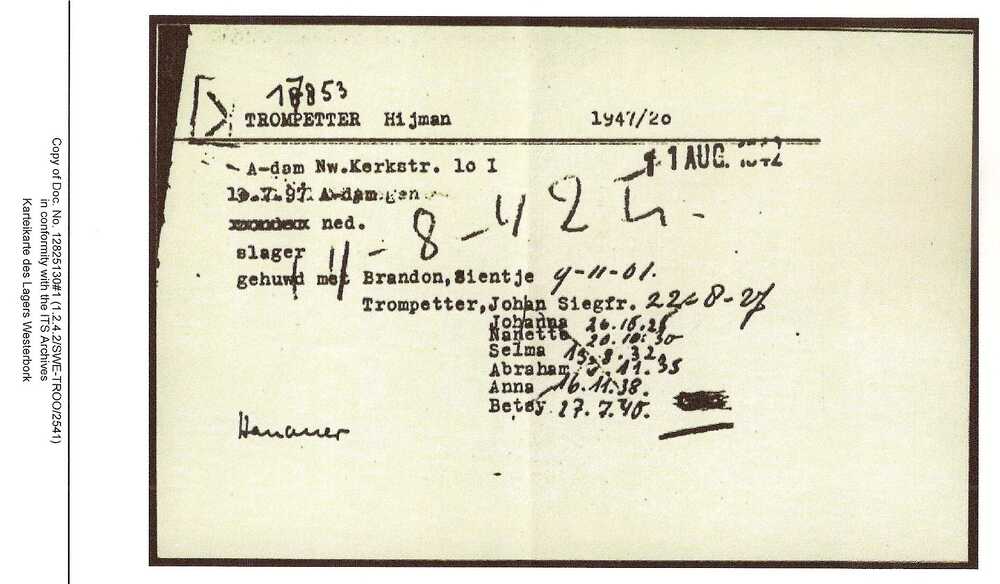 Copy of Doc. No. 12825130#1 (1.2.4.2/SWE-TROO/2541)
in conformity with the ITS Archives
Karteikarte des Lagers Westerbork
TROMPETTER Hijman 1947/20
A-dam Nw.Kerkstr. 1o I 1 AUG. 1942
.7.97. A-dam gen
ned. 11-8-42
slager
gehuwd met Brandon,Sientje 9-11-01.
Trompetter,Johan Siegfr. 22-8-27
Johanna
Nanette 20.10.30
Selma 15.8.32.
Abraham .11.35
Anna 16.11.38.
Betsy 27.7.40.
Hanauer